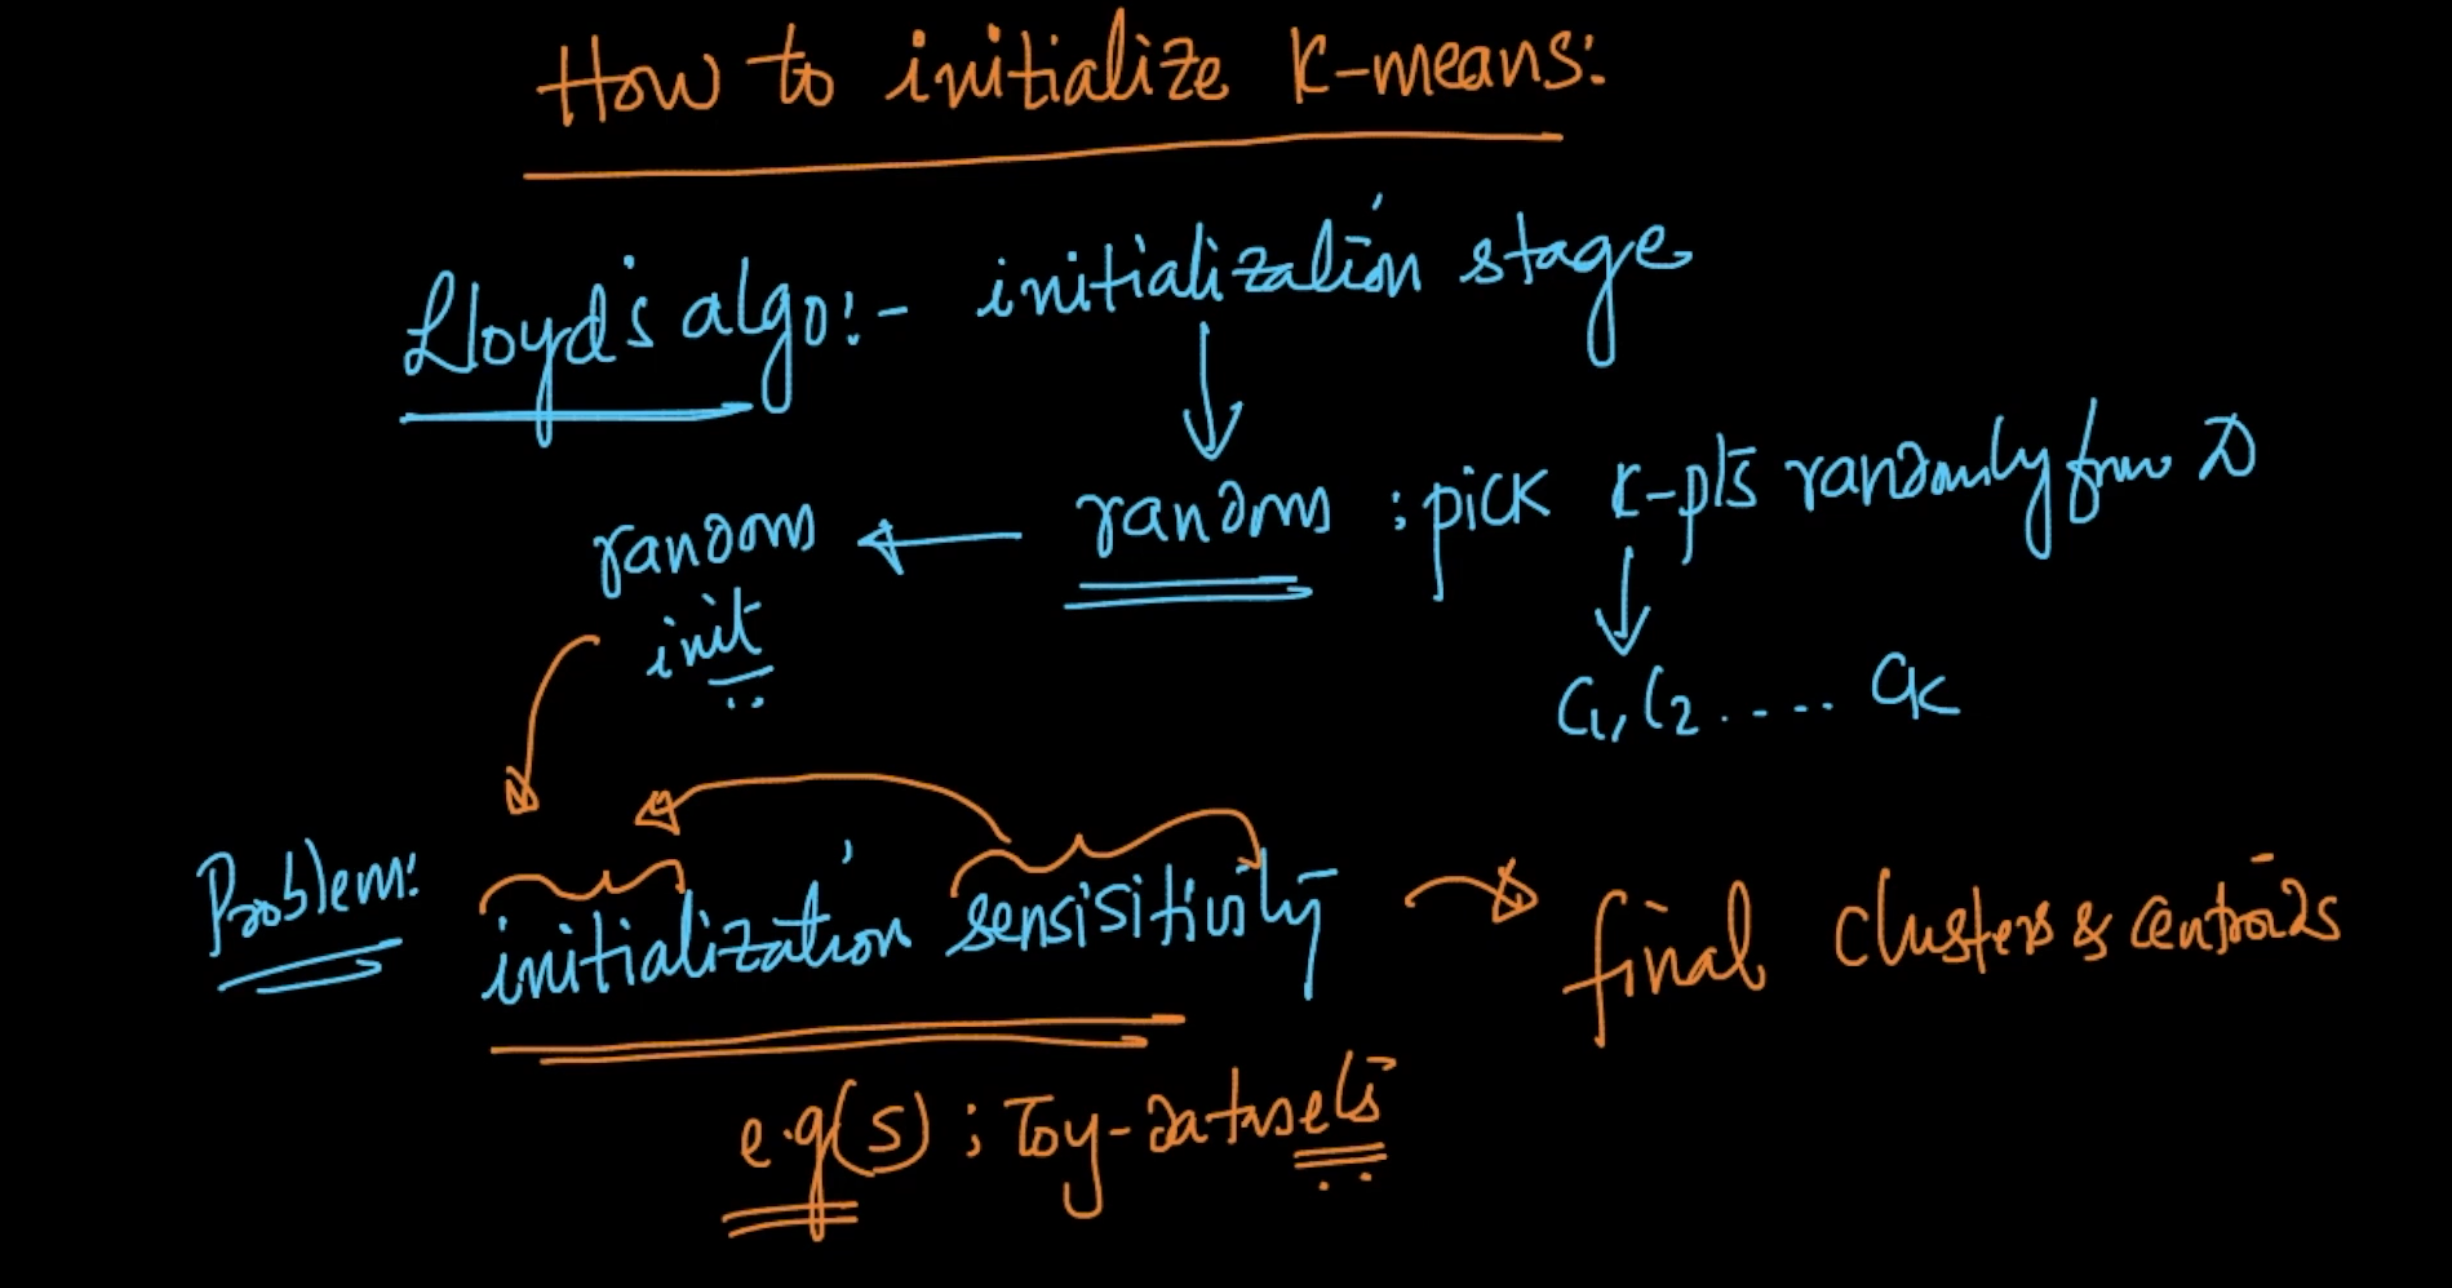 How to initialize K-means:
Lloyd's algo:- initialization stage
random ← random : pick K-pts randomly from D
init
C1, C2 ..... CK
Problem: initialization sensisitivity → final clusters & centroids
e.g(s) ; Toy-datasets